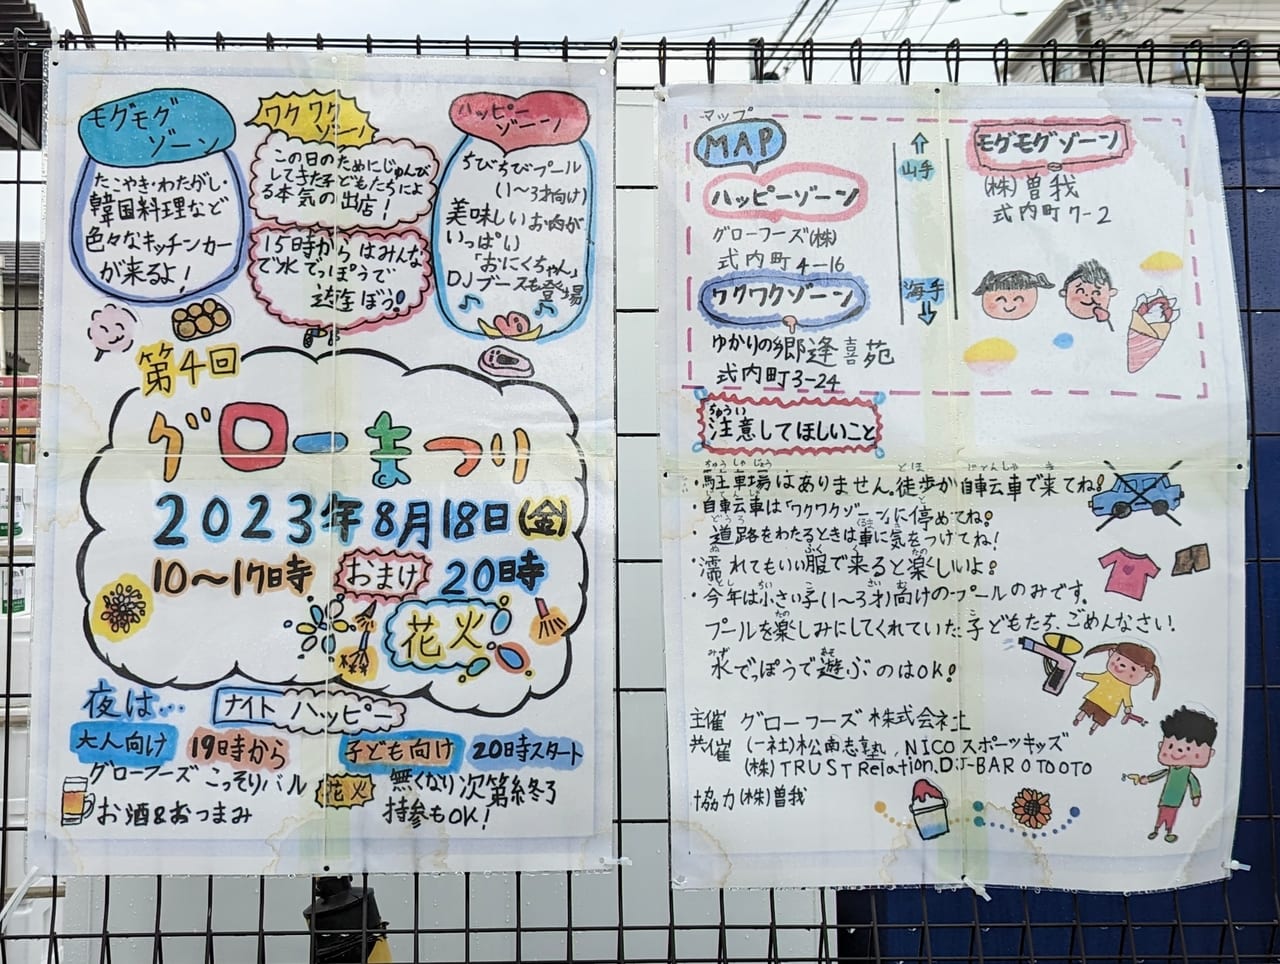 モグモグ
ゾーン
たこやき・わたがし・
韓国料理など
色々なキッチンカー
が来るよ!
ワクワク
ゾーン
この日のためにじゅんび
してきた子どもたちによ
る本気の出店!
15時からはみんな
で水でっぽうで
遊ぼう!
ハッピー
ゾーン
ちびちびプール
(1〜3才向け)
美味しいお肉が
いっぱい
「おにくちゃん」
DJブースも登場
第4回
グローまつり
2023年8月18日(金)
10〜17時
おまけ
20時
花火
夜は…
ナイトハッピー
大人向け
19時から
グローフーズ こっそりバル
お酒&おつまみ
子ども向け
20時スタート
花火
無くなり次第終了
持参もOK!
マップ
MAP
ハッピーゾーン
グローフーズ(株)
式内町4-16
ワクワクゾーン
ゆかりの郷逢喜苑
式内町3-24
山手
海手
モグモグゾーン
(株)曽我
式内町7-2
ちゅうい
注意してほしいこと
ちゅうしゃじょう とほ じてんしゃ き
・駐車場はありません。徒歩か自転車で来てね!
・自転車は「ワクワクゾーン」に停めてね!
・道路をわたるときは車に気をつけてね!
・濡れてもいい服で来ると楽しいよ!
・今年は小さい子(1〜3才)向けのプールのみです。
プールを楽しみにしてくれていた子どもたち、ごめんなさい!
水でっぽうで遊ぶのはOK!
主催 グローフーズ株式会社
共催 (一社)松南志塾、NICOスポーツキッズ
(株)TRUST Relation、DJ-BAR OTOOTO
協力 (株)曽我